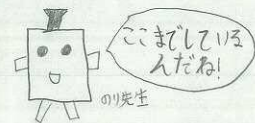 ここまでしている
んだね!
のり先生